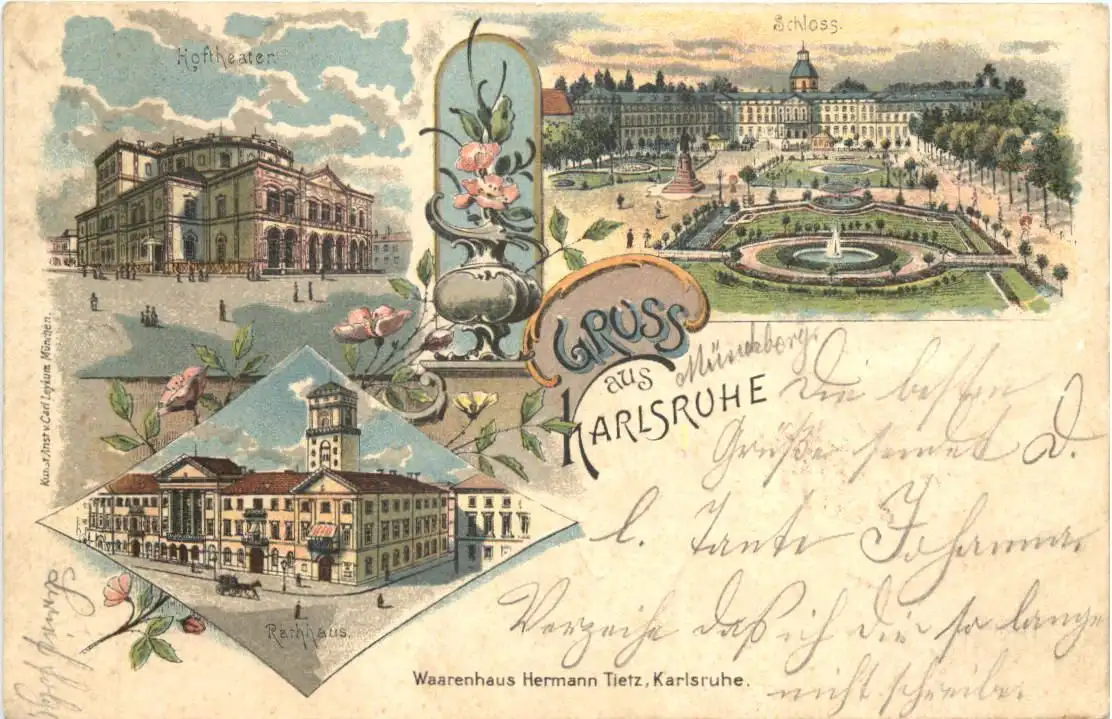 Hoftheater
Schloss.
GRUSS
aus
KARLSRUHE
Die besten
Grüße sendet D.
l. Tante Johanna.
Verzeihe daß ich Dir so lange
nicht schreibe
Rathhaus.
Waarenhaus Hermann Tietz, Karlsruhe.
Kunst Anst v. Carl Leykum München.